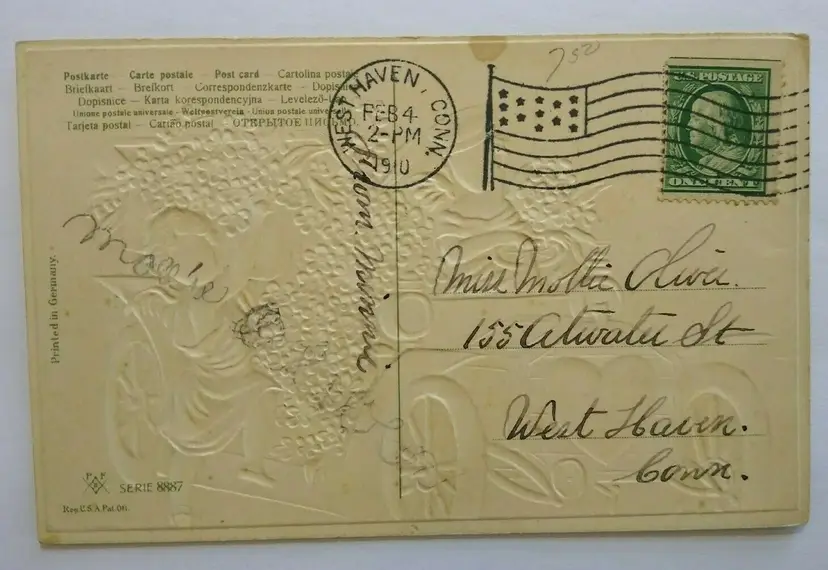 Postkarte – Carte postale – Post card – Cartolina postale
Briefkaart – Brefkort – Correspondenzkarte – Dopisnice
Dopisnice – Karta korespondencyjna – Levelező-
Unione postale universale – Weltpostverein – Union postale
Tarjeta postal – Cartão postal – ОТКРЫТОЕ ПИСЬМО
WEST HAVEN, CONN.
FEB 4
2-PM
1910
7 50
U.S. POSTAGE
ONE CENT
From Minnie
Miss Mollie Oliver.
155 Atwater St
West Haven.
Conn.
Printed in Germany.
P F
SERIE 8887
Reg. U.S.A. Pat. Off.